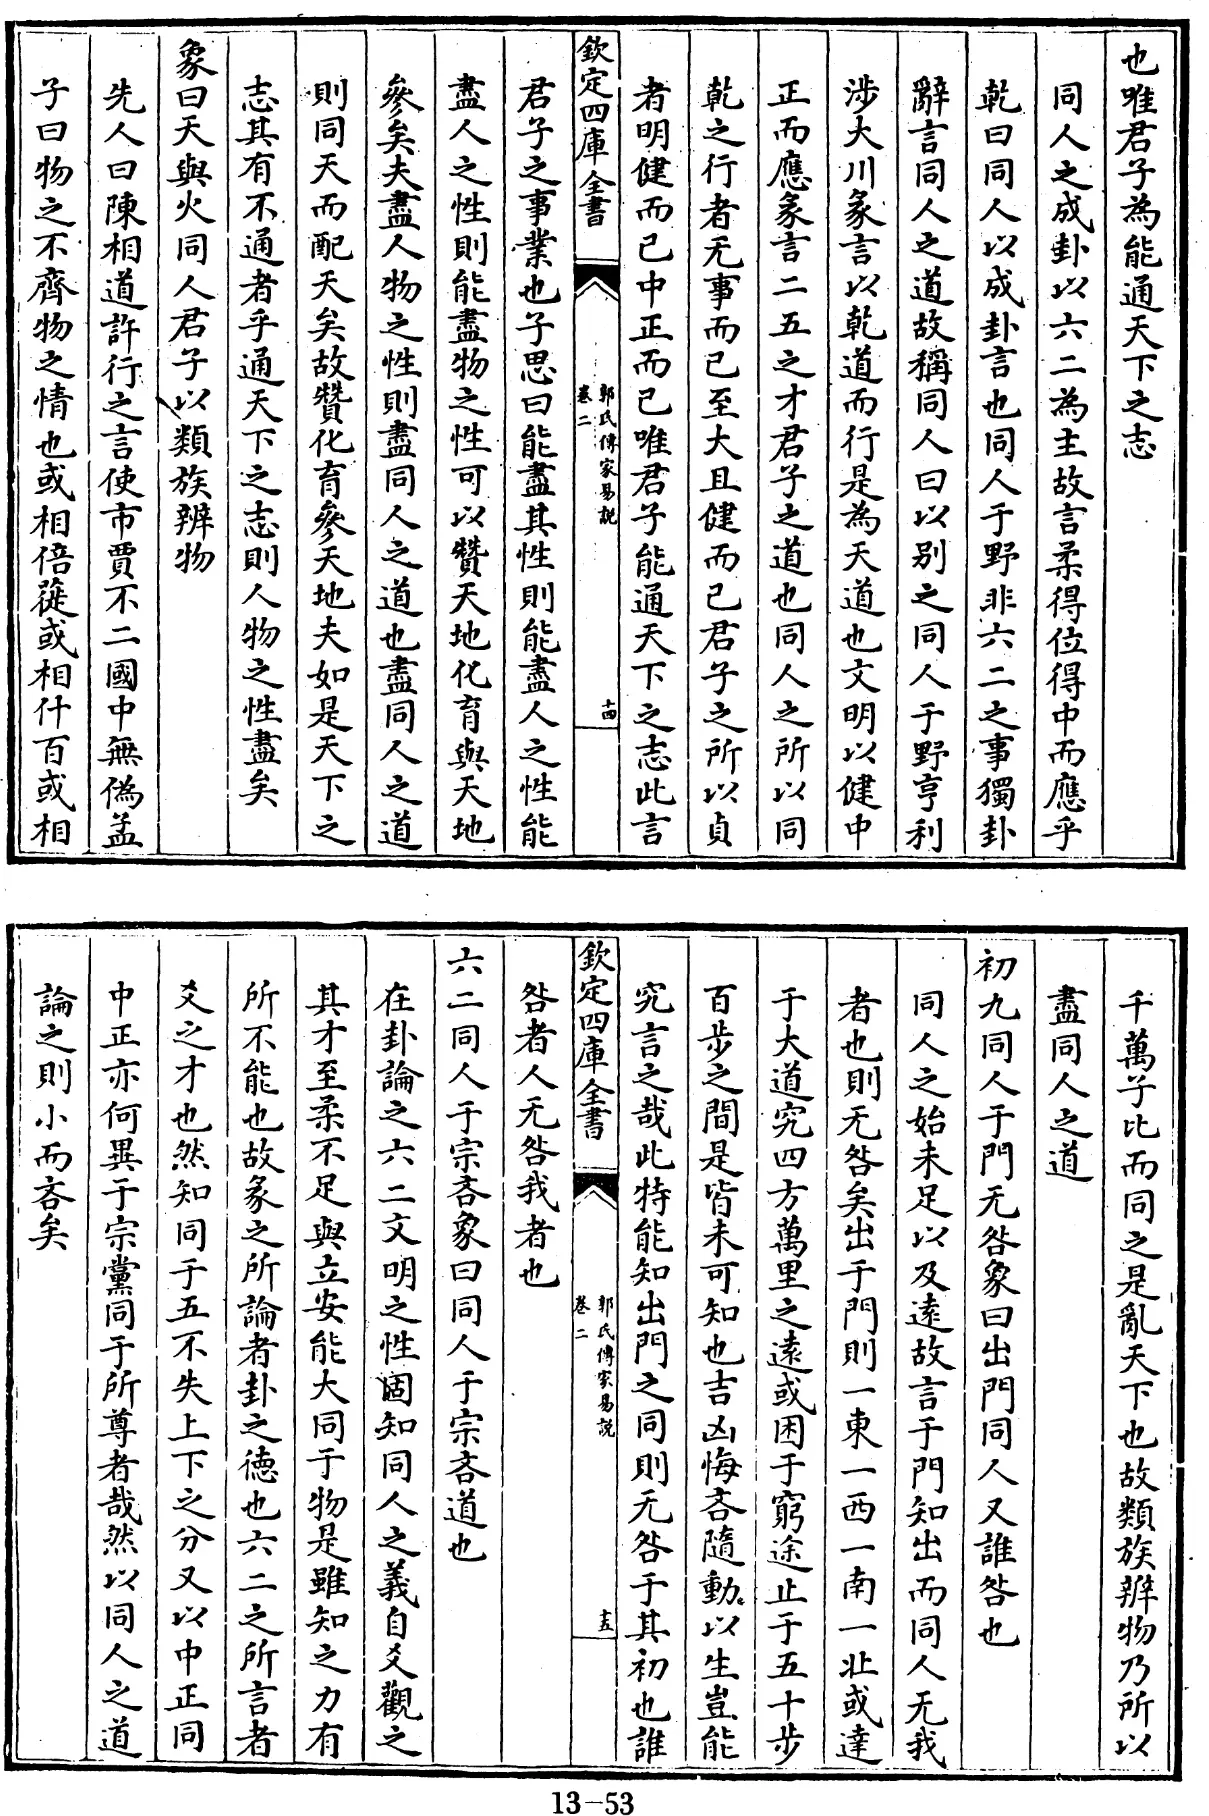 也唯君子為能通天下之志
同人之成卦以六二為主故言柔得位得中而應乎
乾曰同人以成卦言也同人于野非六二之事獨卦
辭言同人之道故稱同人曰以別之同人于野亨利
涉大川彖言以乾道而行是為天道也文明以健中
正而應彖言二五之才君子之道也同人之所以同
乾之行者无事而已至大且健而已君子之所以貞
者明健而已中正而已唯君子能通天下之志此言
欽定四庫全書
郭氏傳家易說
卷二
十四
君子之事業也子思曰能盡其性則能盡人之性能
盡人之性則能盡物之性可以贊天地化育與天地
參矣夫盡人物之性則盡同人之道也盡同人之道
則同天而配天矣故贊化育參天地夫如是天下之
志其有不通者乎通天下之志則人物之性盡矣
象曰天與火同人君子以類族辨物
先人曰陳相道許行之言使市賈不二國中無偽孟
子曰物之不齊物之情也或相倍蓰或相什百或相
千萬子比而同之是亂天下也故類族辨物乃所以
盡同人之道
初九同人于門无咎象曰出門同人又誰咎也
同人之始未足以及遠故言于門知出而同人无我
者也則无咎矣出于門則一東一西一南一北或達
于大道究四方萬里之遠或困于窮途止于五十步
百步之間是皆未可知也吉凶悔吝隨動以生豈能
究言之哉此特能知出門之同則无咎于其初也誰
欽定四庫全書
郭氏傳家易說
卷二
十五
咎者人无咎我者也
六二同人于宗吝象曰同人于宗吝道也
在卦論之六二文明之性固知同人之義自爻觀之
其才至柔不足與立安能大同于物是雖知之力有
所不能也故彖之所論者卦之德也六二之所言者
爻之才也然知同于五不失上下之分又以中正同
中正亦何異于宗黨同于所尊者哉然以同人之道
論之則小而吝矣
13-53